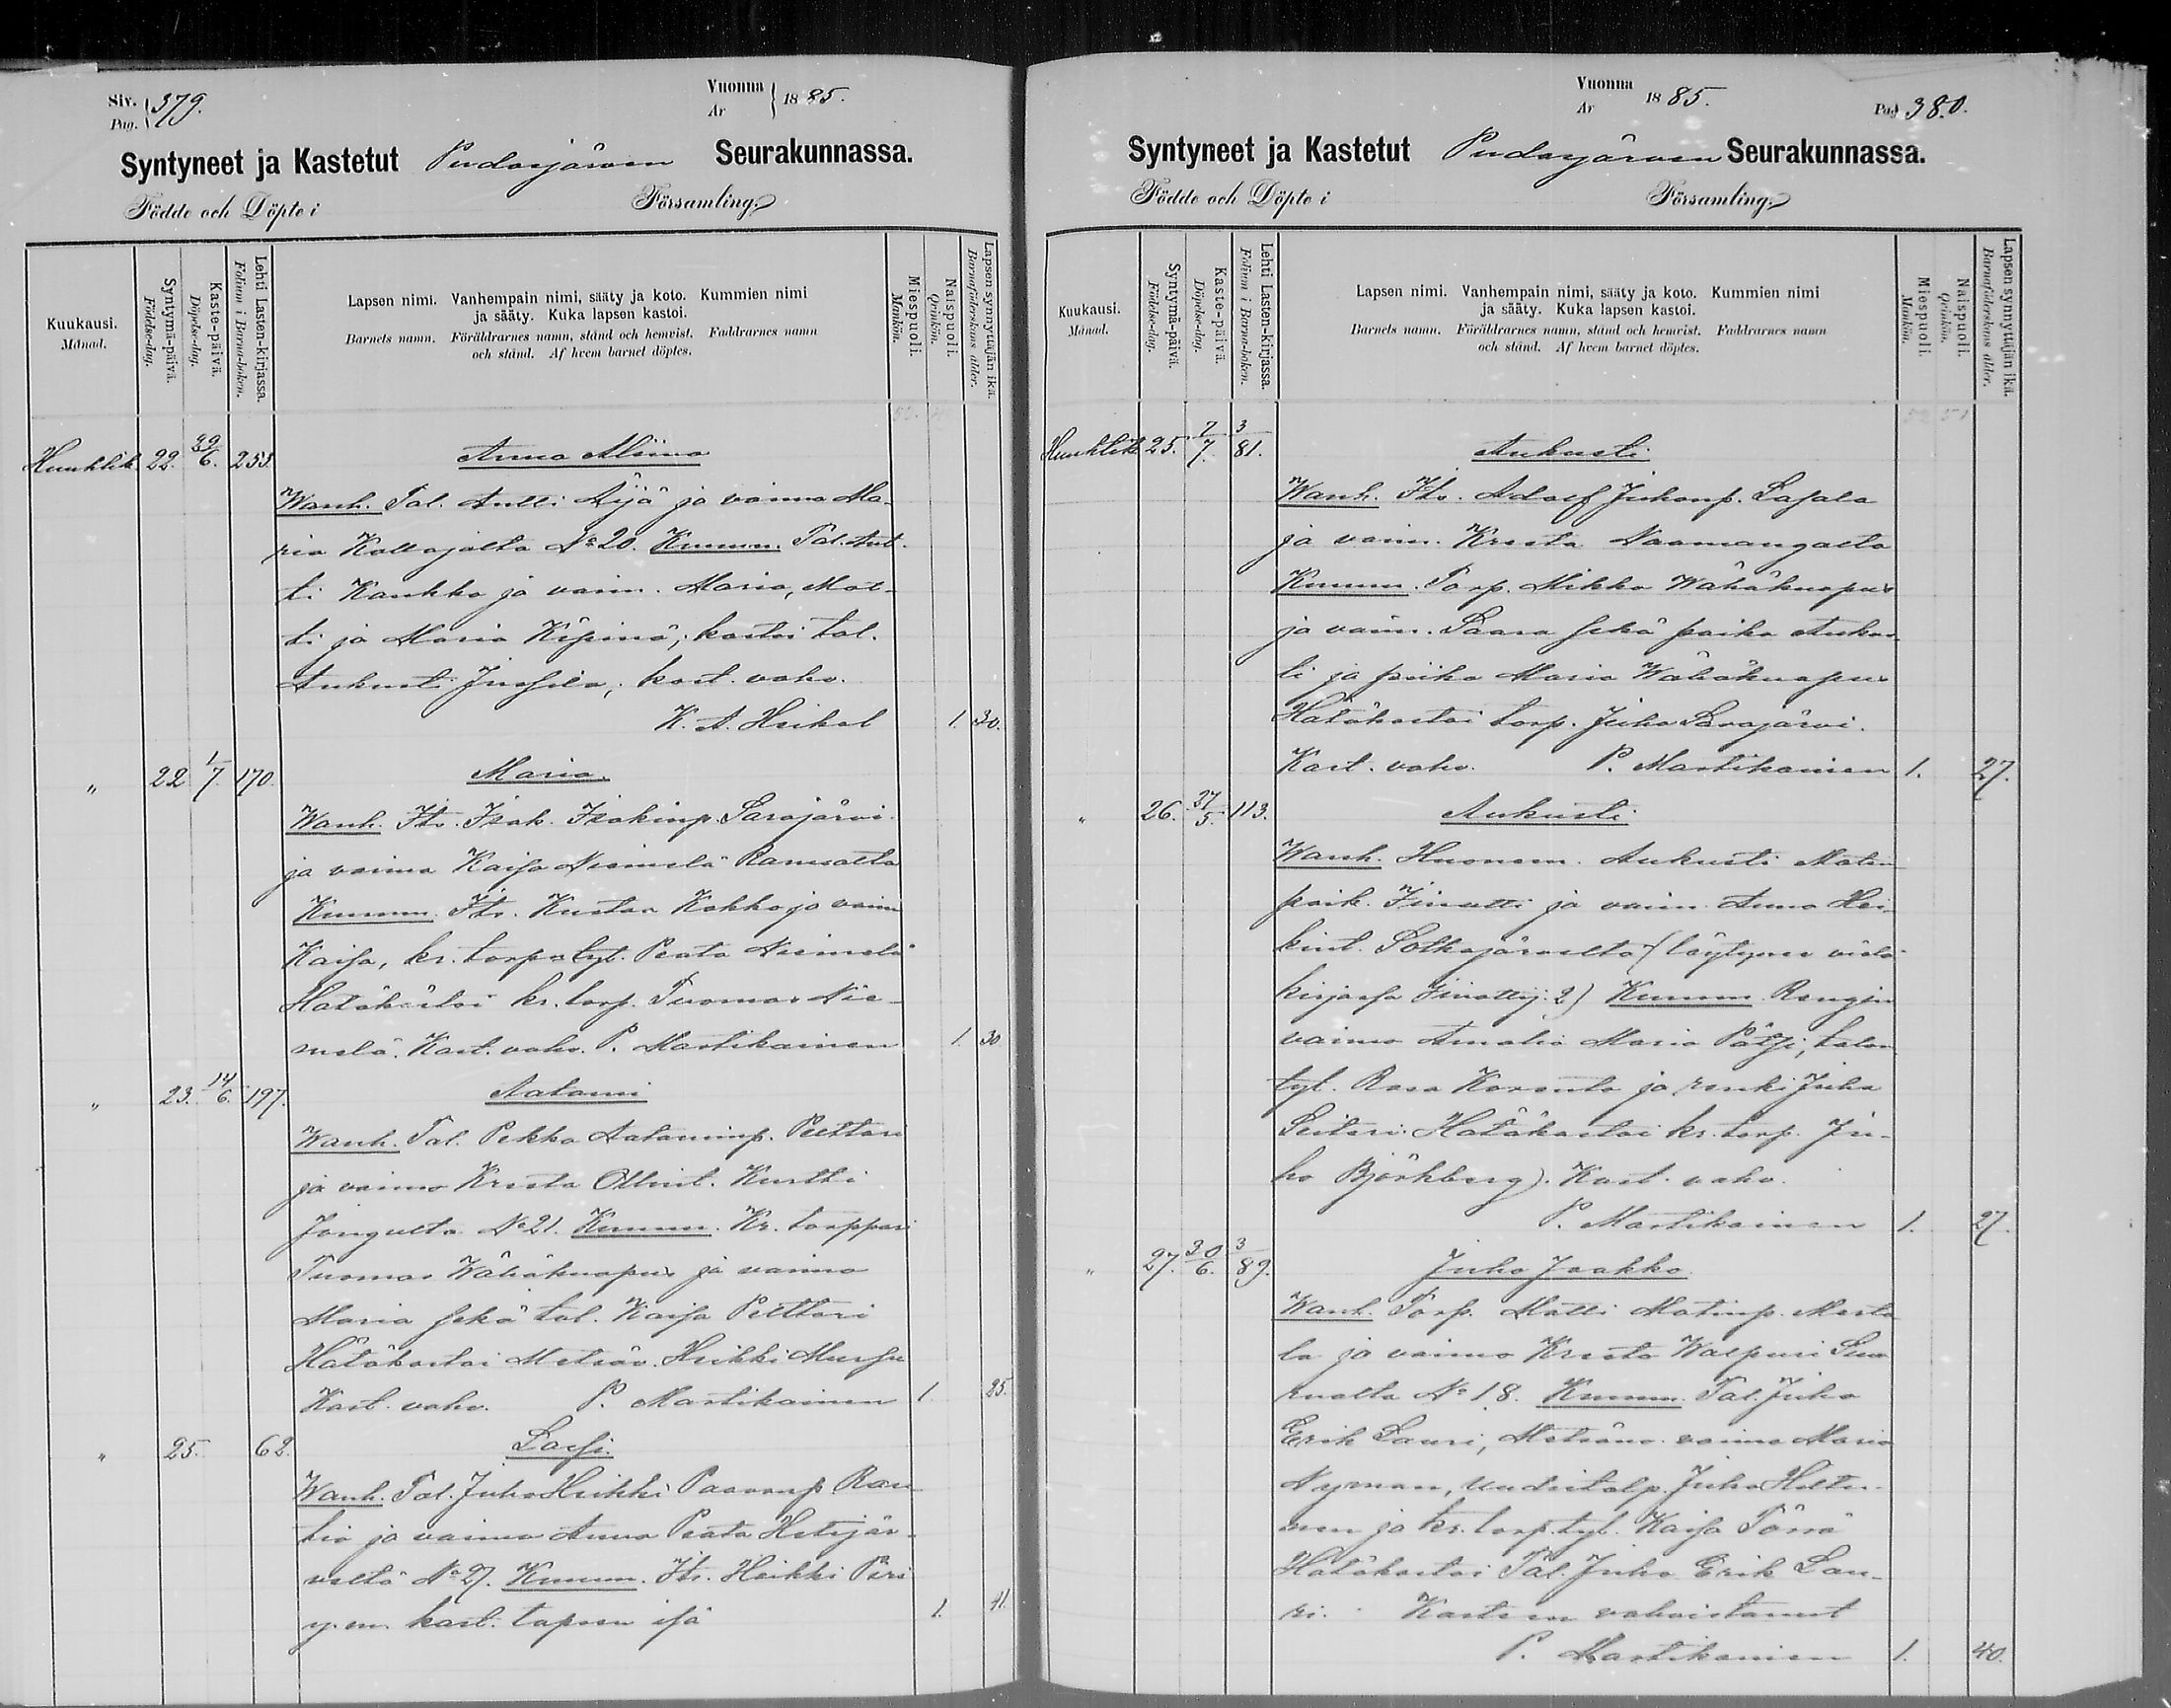 Siv. 379.
Pag.
Vuonna 1885.
År
Syntyneet ja Kastetut Pudasjärven Seurakunnassa.
Födde och Döpte i Församling.
Kuukausi.
Månad.
Syntymä-päivä.
Födelse-dag.
Kaste-päivä.
Döpelse-dag.
Lehti Lasten-kirjassa.
Folium i Barna-boken.
Lapsen nimi. Vanhempain nimi, sääty ja koto. Kummien nimi
ja sääty. Kuka lapsen kastoi.
Barnets namn. Föräldrarnes namn, stånd och hemvist. Faddrarnes namn
och stånd. Af hvem barnet döptes.
Miespuoli.
Mankön.
Naispuoli.
Qvinkön.
Lapsen synnyttäjän ikä.
Barnaföderskans ålder.
Huuhtik. 22. 29/6. 253. Anna Aliina
Wanh. Tal. Antti Äijä ja vaimo Ma-
ria Kollajalta No 20. Kumm. Tal. Ant-
ti Kaukko ja vaim. Maria, Mat-
ti ja Maria Kipinä; kastoi tal.
Aukusti Jussila; kast. vahv.
K. A. Heikel 1. 30.
" 22 1/7. 170. Maria.
Wanh. Its. Isak Isakinp. Sarajärvi
ja vaimo Kaisa Niemelä Ranualta
Kumm. Its. Kustaa Kokko ja vaim
Kaisa, kr. torp. tyt. Peata Niemelä
Hätäkastoi kr. torp. Tuomas Nie-
melä. Kast. vahv. P. Martikainen 1. 30
" 23. 14/6. 197. Aatami
Wanh. Tal. Pekka Aataminp. Pettari
ja vaimo Kreeta Ollint. Kurtti
Jongulta No 21. Kumm. Kr. torppari
Tuomas Wähäkuopus ja vaimo
Maria sekä tal. Kaisa Pilttari
Hätäkastoi Metsäv. Heikki Mursu
Kast. vahv. P. Martikainen 1. 25.
" 25. 62. Lassi.
Wanh. Tal. Juho Heikki Paavonp. Rau-
tio ja vaimo Anna Peata Hetejär-
veltä No 27. Kumm. Its. Heikki Piri
y. m. kast. lapsen isä 1. 41.
Vuonna 1885.
År
Pag 380.
Syntyneet ja Kastetut Pudasjärven Seurakunnassa.
Födde och Döpte i Församling.
Kuukausi.
Månad.
Syntymä-päivä.
Födelse-dag.
Kaste-päivä.
Döpelse-dag.
Lehti Lasten-kirjassa.
Folium i Barna-boken.
Lapsen nimi. Vanhempain nimi, sääty ja koto. Kummien nimi
ja sääty. Kuka lapsen kastoi.
Barnets namn. Föräldrarnes namn, stånd och hemvist. Faddrarnes namn
och stånd. Af hvem barnet döptes.
Miespuoli.
Mankön.
Naispuoli.
Qvinkön.
Lapsen synnyttäjän ikä.
Barnaföderskans ålder.
Huuhtik 25. 7/7. 3/81. Aukusti
Wanh. Its. Adolf Juhonp. Lasala
ja vaim. Kreeta Naamangalta
Kumm. Torp. Mikko Wähäkuopus
ja vaim. Saara sekä poika Aukus-
ti ja piika Maria Wähäkuopus
Hätäkastoi torp. Juho Sarajärvi.
Kast. vahv. P. Martikainen 1. 27.
" 26. 27/5. 113. Aukusti
Wanh. Huonem. Aukusti Matin
poik. Jinatti ja vaim Anna Hei-
kint. Sotkajärveltä (löytynee vielä
kirjassa Jinattij. 2) Kumm. Rengin
vaimo Amalia Maria Pätsi, talon
tyt. Rosa Koronta ja renki Juho
Leiteri. Hätäkastoi kr. torp. Ju-
ho Björkberg). Kast. vahv.
P. Martikainen 1. 27.
" 27. 30/6. 3/89. Juho Jaakko
Wanh. Torp. Matti Matinp. Merta-
la ja vaimo Kreeta Walpuri Siu-
rualta No 18. Kumm. Tal. Juho
Erik Lauri, Metsänv. vaimo Maria
Nyman, uudistalp. Juho Hiltu-
nen ja kr. torp. tyt. Kaisa Törrö
Hätäkastoi Tal. Juho Erik Lau-
ri. Kasteen vahvistanut
P. Martikainen 1. 40.